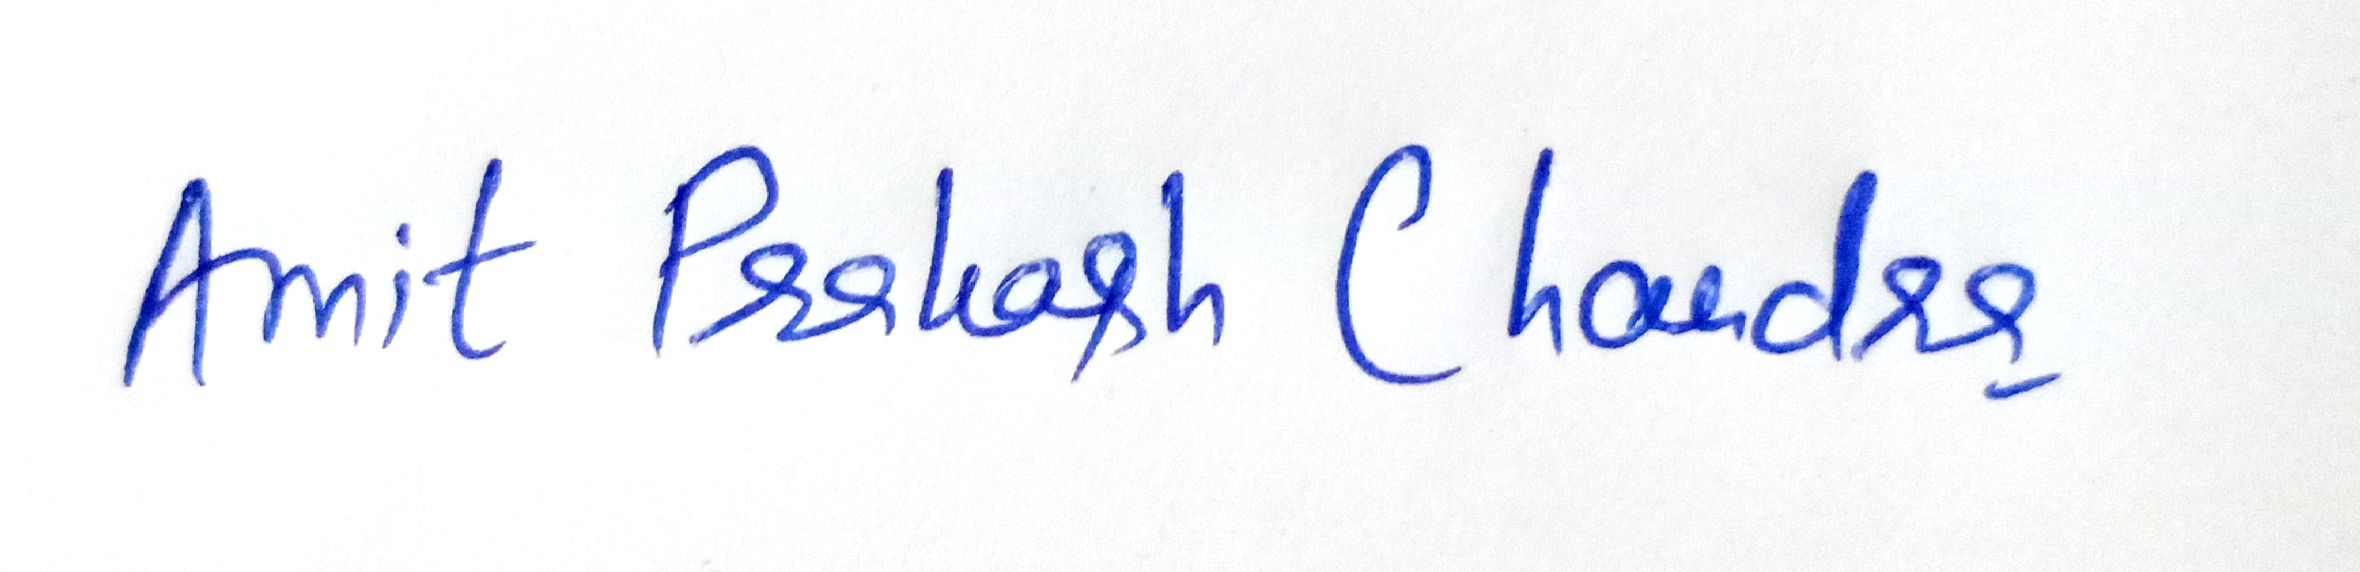 Amit Prakash Chandra